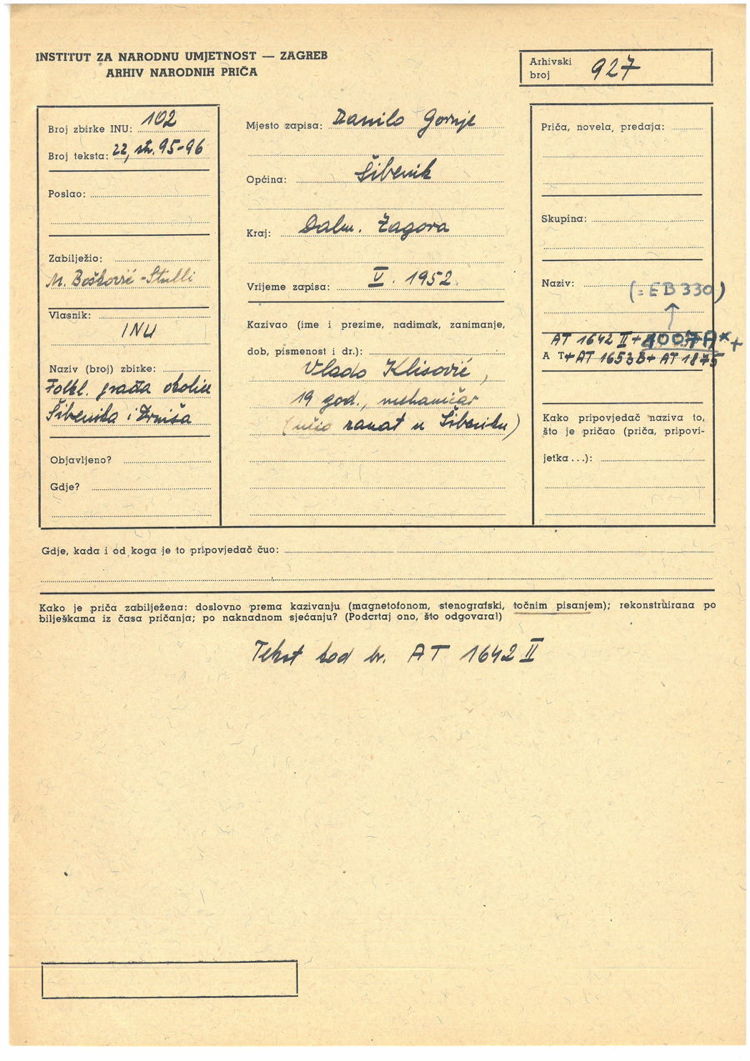 INSTITUT ZA NARODNU UMJETNOST — ZAGREB
ARHIV NARODNIH PRIČA
Arhivski broj 927
Broj zbirke INU: 102
Broj teksta: 22, str. 95-96
Poslao:
Zabilježio:
M. Bošković-Stulli
Vlasnik:
INU
Naziv (broj) zbirke:
Folkl. građa okolice
Šibenika i Drniša
Objavljeno?
Gdje?
Mjesto zapisa: Danilo Gornje
Općina: Šibenik
Kraj: Dalm. Zagora
Vrijeme zapisa: V. 1952.
Kazivao (ime i prezime, nadimak, zanimanje,
dob, pismenost i dr.):
Vlado Klisović,
19 god., mehaničar
(učio zanat u Šibeniku)
Priča, novela, predaja:
Skupina:
Naziv:
(=EB 330)
AT 1642 II + 1007A* +
A T + AT 1653B + AT 1875
Kako pripovjedač naziva to,
što je pričao (priča, pripovi-
jetka...):
Gdje, kada i od koga je to pripovjedač čuo:
Kako je priča zabilježena: doslovno prema kazivanju (magnetofonom, stenografski, točnim pisanjem); rekonstruirana po
bilješkama iz časa pričanja; po naknadnom sjećanju? (Podcrtaj ono, što odgovara!)
Tekst kod br. AT 1642 II